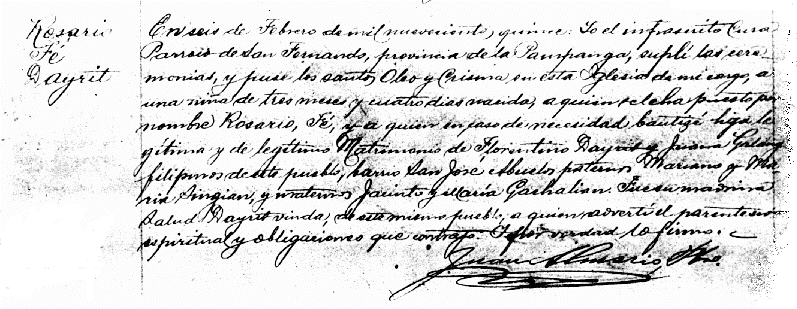 Rosario
Fé
Dayrit
En seis de Febrero de mil novecientos quince: Yo el infrascrito Cura
Parroco de San Fernando, provincia de la Pampanga, suplí las cere-
monias, y puse los santos Oleo y Crisma en esta Iglesia de mi cargo, a
una niña de tres meses y cuatro dias nacida, a quien se le ha puesto por
nombre Rosario, Fé, y a quien en caso de necesidad bautizé hija le-
gitima y de legitimo Matrimonio de Florentino Dayrit y Juana
filipinos de este pueblo, barrio San José Abuelos paternos Mariano y Ma-
ria Singian, y maternos Jacinto y María Gachalian. Fue su madrina
Salud Dayrit vinda, de este mismo pueblo, a quien advertí el parentesco
espiritual y obligaciones que contrajo. Y por verdad lo firmo.
Juan Almario Pbo.